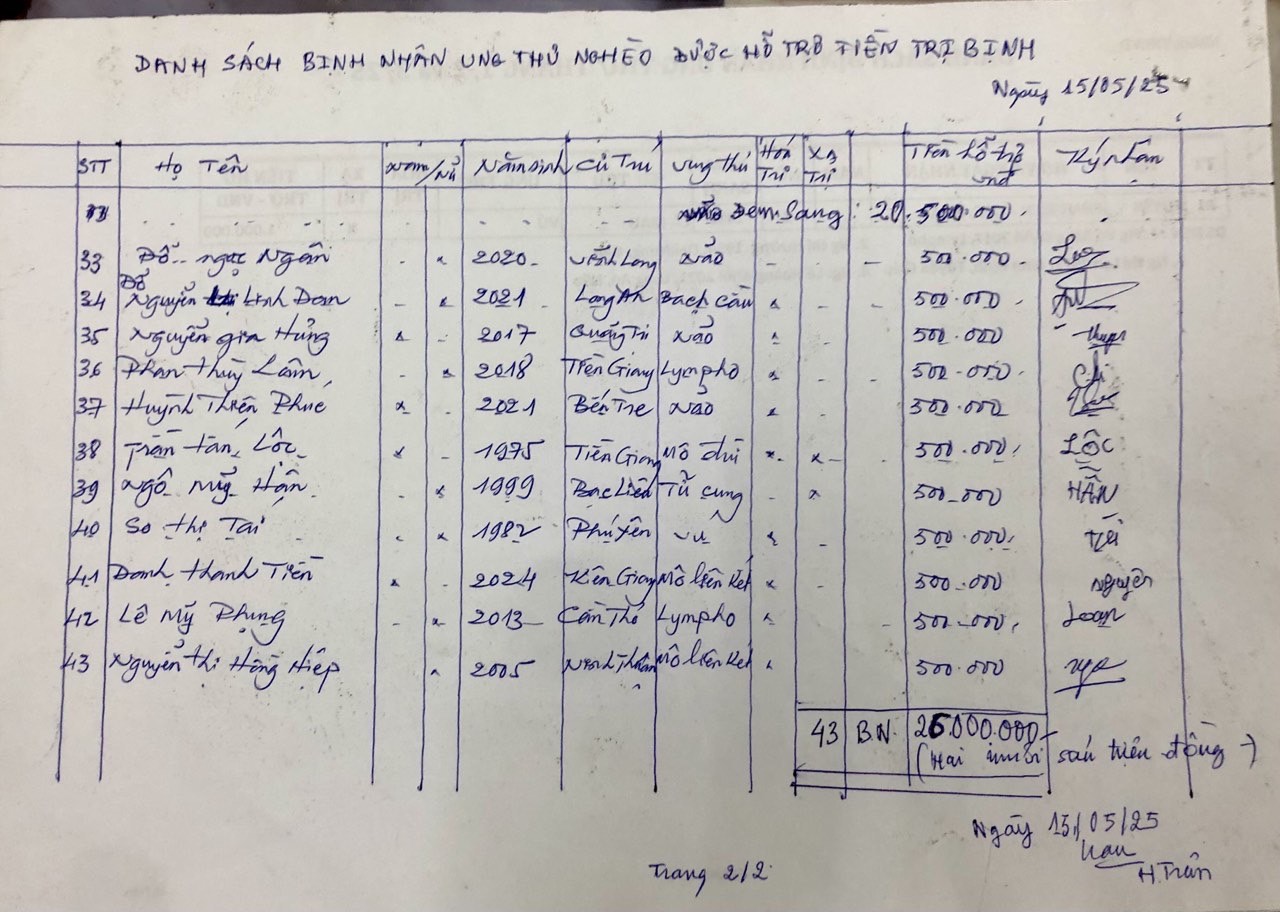 DANH SÁCH BỊNH NHÂN UNG THƯ NGHÈO ĐƯỢC HỖ TRỢ TIỀN TRỊ BỊNH
Ngày 15/05/25
STT Họ Tên Nam/Nữ Năm sinh Cư Trú Ung thư Hóa Trị Xạ Trị Tiền hỗ trợ vnđ Ký nhận
Đem sang 20.500.000
33 Đỗ ngọc Ngân - x 2020 Vĩnh Long Não - - - 500.000
34 Nguyễn Đỗ Linh Đan - x 2021 Long An Bạch cầu x - - 500.000
35 Nguyễn gia Hưng x - 2017 Quảng Trị Não x - 500.000
36 Phan Thùy Lâm - x 2018 Tiền Giang Lympho x - - 500.000 Chi
37 Huỳnh Thiên Phúc x - 2021 Bến Tre Não x - 500.000
38 Trần tấn Lộc x - 1975 Tiền Giang Mô đùi x x - 500.000 LỘC
39 Ngô Mỹ Hận - x 1999 Bạc Liêu Tử cung - x 500.000 HẬN
40 So thị Tai - x 1982 Phú Yên Vú x - 500.000
41 Danh thanh Tiến x - 2024 Kiên Giang Mô liên kết x - 500.000 Nguyên
42 Lê Mỹ Phụng - x 2013 Cần Thơ Lympho x - 500.000 Loan
43 Nguyễn thị Hồng Hiệp x 2005 Ninh Thuận Mô liên kết x 500.000
43 B.N. 26.000.000
(Hai mươi sáu triệu đồng)
Ngày 15/05/25
H.Trân
Trang 2/2